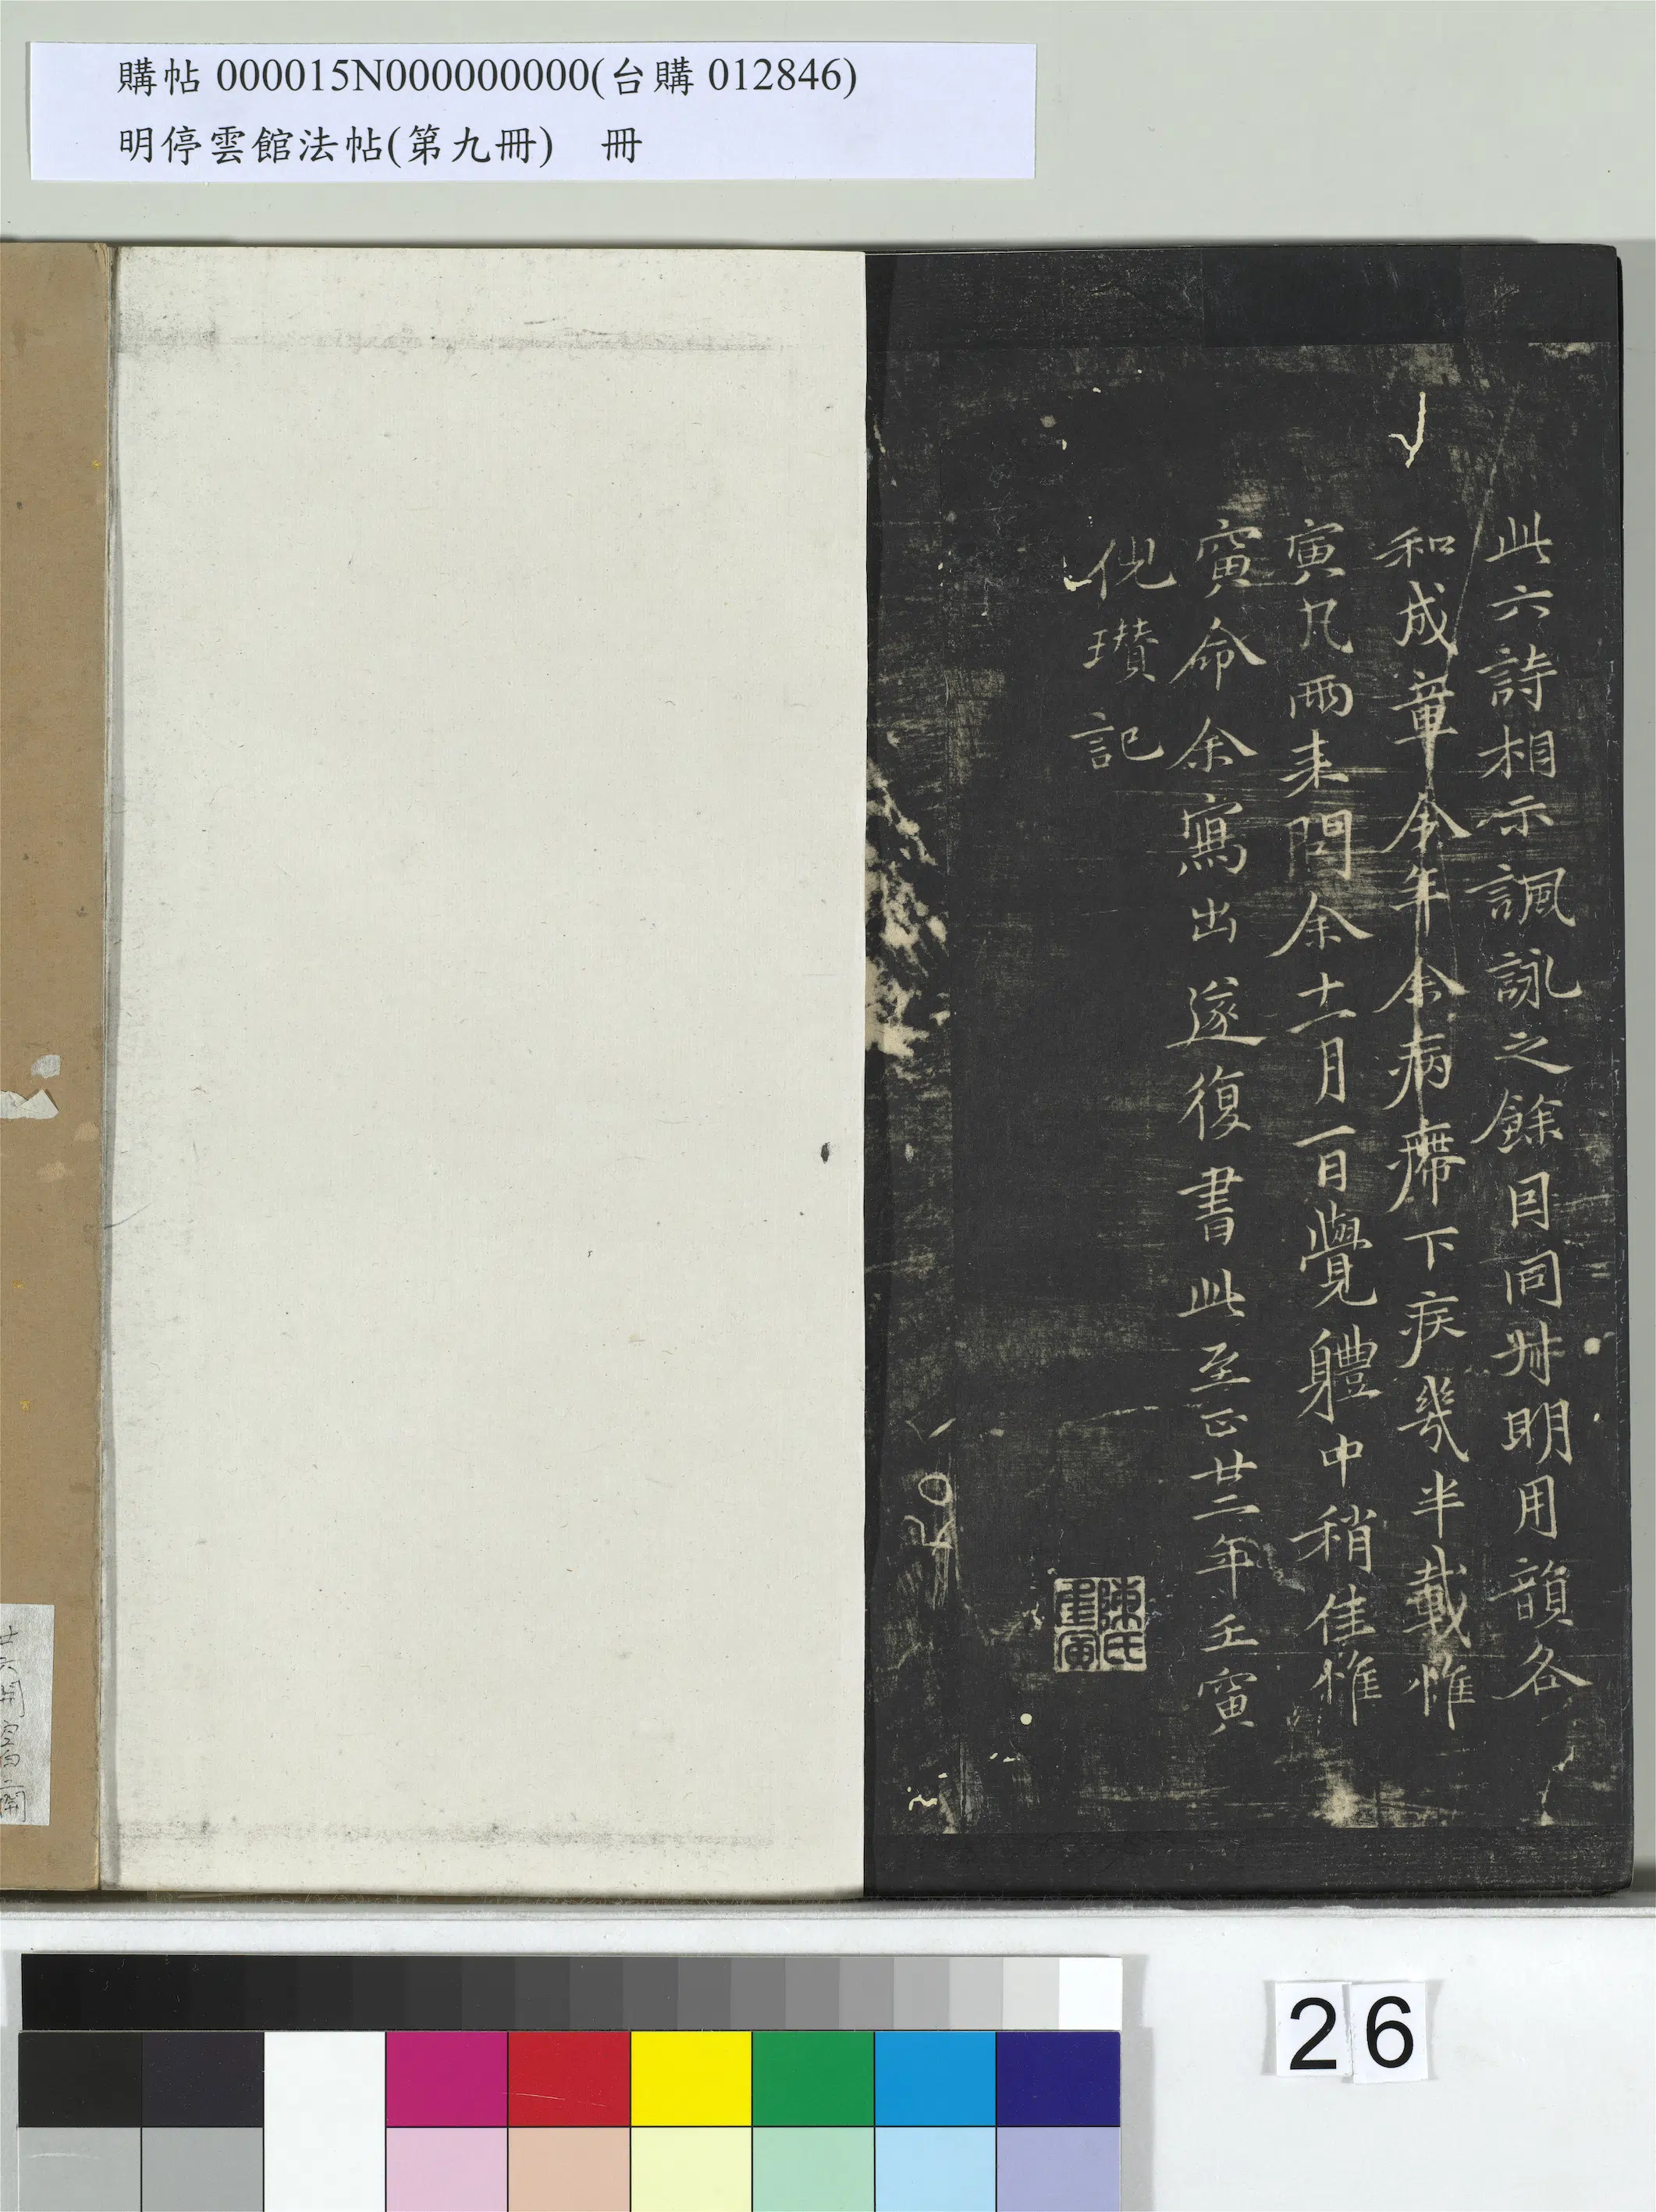 購帖 000015N000000000(台購 012846)
明停雲館法帖(第九冊) 冊
此六詩相示諷詠之餘因同叔明用韻各
和成章今年余病滯下疾幾半載惟
寅凡兩來問余十一月一日覺體中稍佳惟
寅命余寫出遂復書此至正廿二年壬寅
倪瓚記
陳氏
26